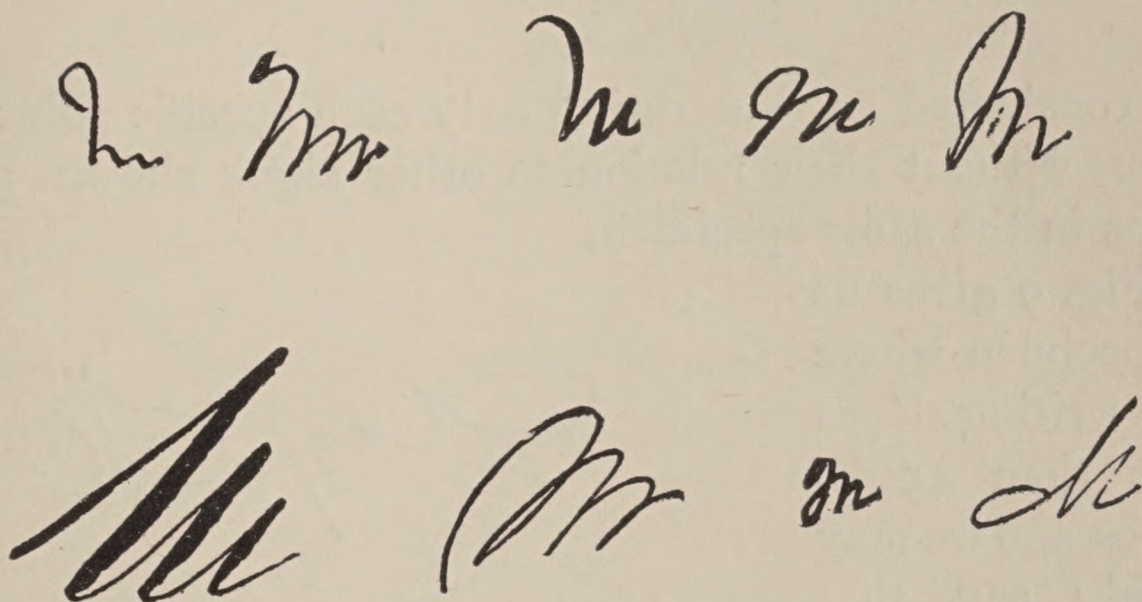 M M M M M
M M M M